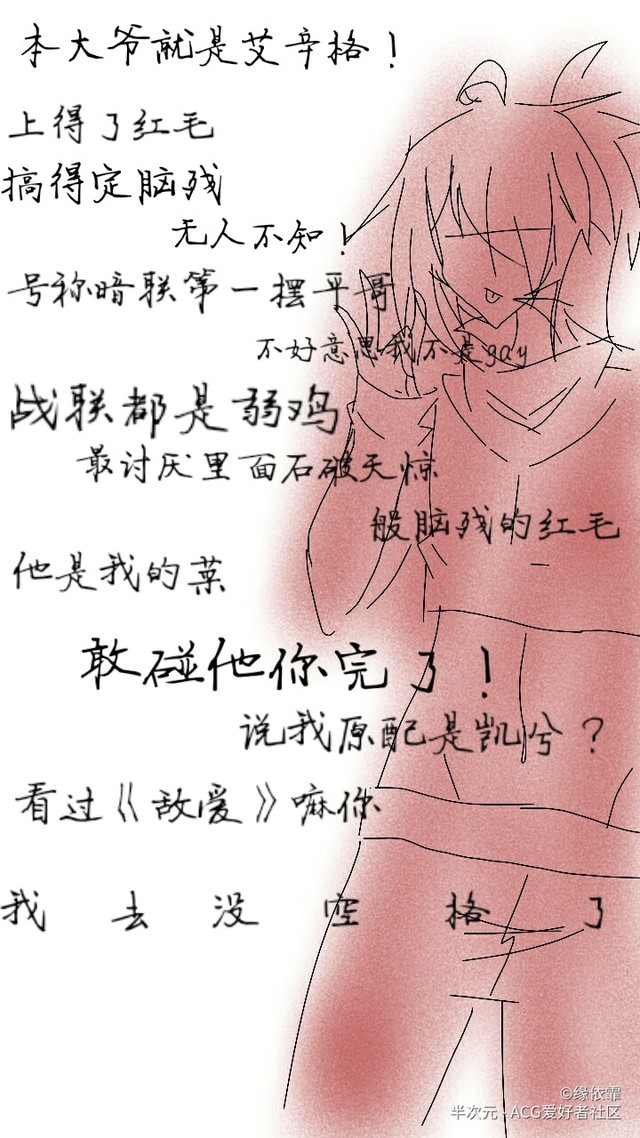 本大爷就是艾辛格！
上得了红毛
搞得定脑残
无人不知！
号称暗联第一摆平哥
不好意思我不是gay
战联都是弱鸡
最讨厌里面石破天惊
般脑残的红毛
他是我的菜
敢碰他你完了！
说我原配是凯兮？
看过《敌爱》嘛你
我去没空格了
©缘依霏
半次元 - ACG爱好者社区